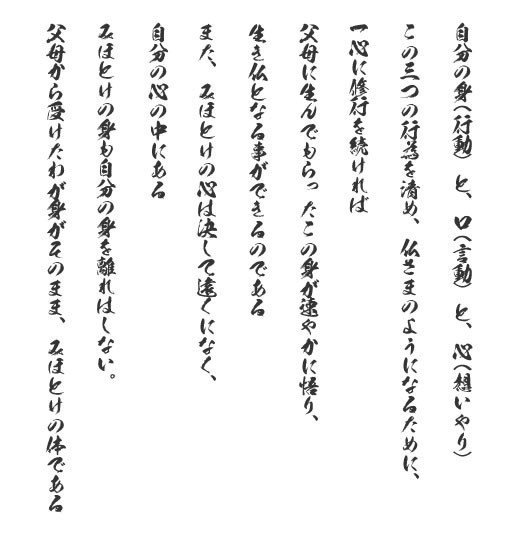 自分の身（行動）と、口（言動）と、心（想いやり）
この三つの行為を清め、仏さまのようになるために、
一心に修行を続ければ
父母に生んでもらったこの身が速やかに悟り、
生き仏となる事ができるのである
また、みほとけの心は決して遠くになく、
自分の心の中にある
みほとけの身も自分の身を離れはしない。
父母から受けたわが身がそのまま、みほとけの体である